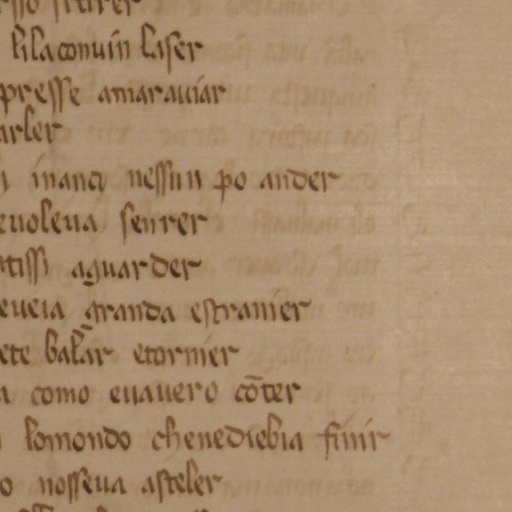 lilaconuin laser
presse amarauiar
arler
inanci nessun po ander
euoleua senrer
atissi aguarder
eueia granda estranier
ete balar etornier
a como euauero cōter
lomondo chenediebia finir
o nosseua asteler